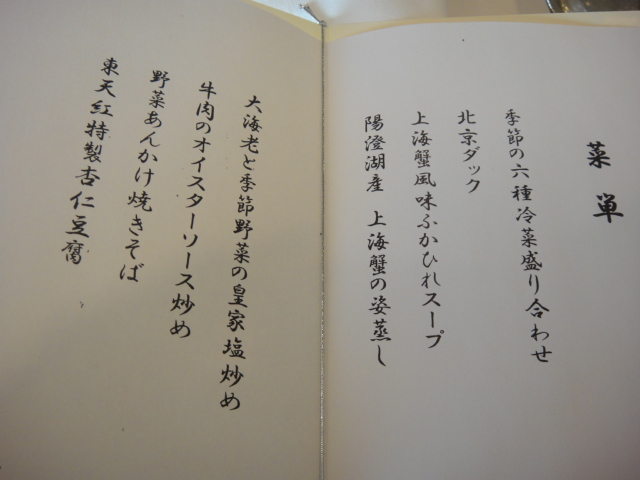 菜単
季節の六種冷菜盛り合わせ
北京ダック
上海蟹風味ふかひれスープ
陽澄湖産 上海蟹の姿蒸し
大海老と季節野菜の皇家塩炒め
牛肉のオイスターソース炒め
野菜あんかけ焼きそば
東天紅特製杏仁豆腐